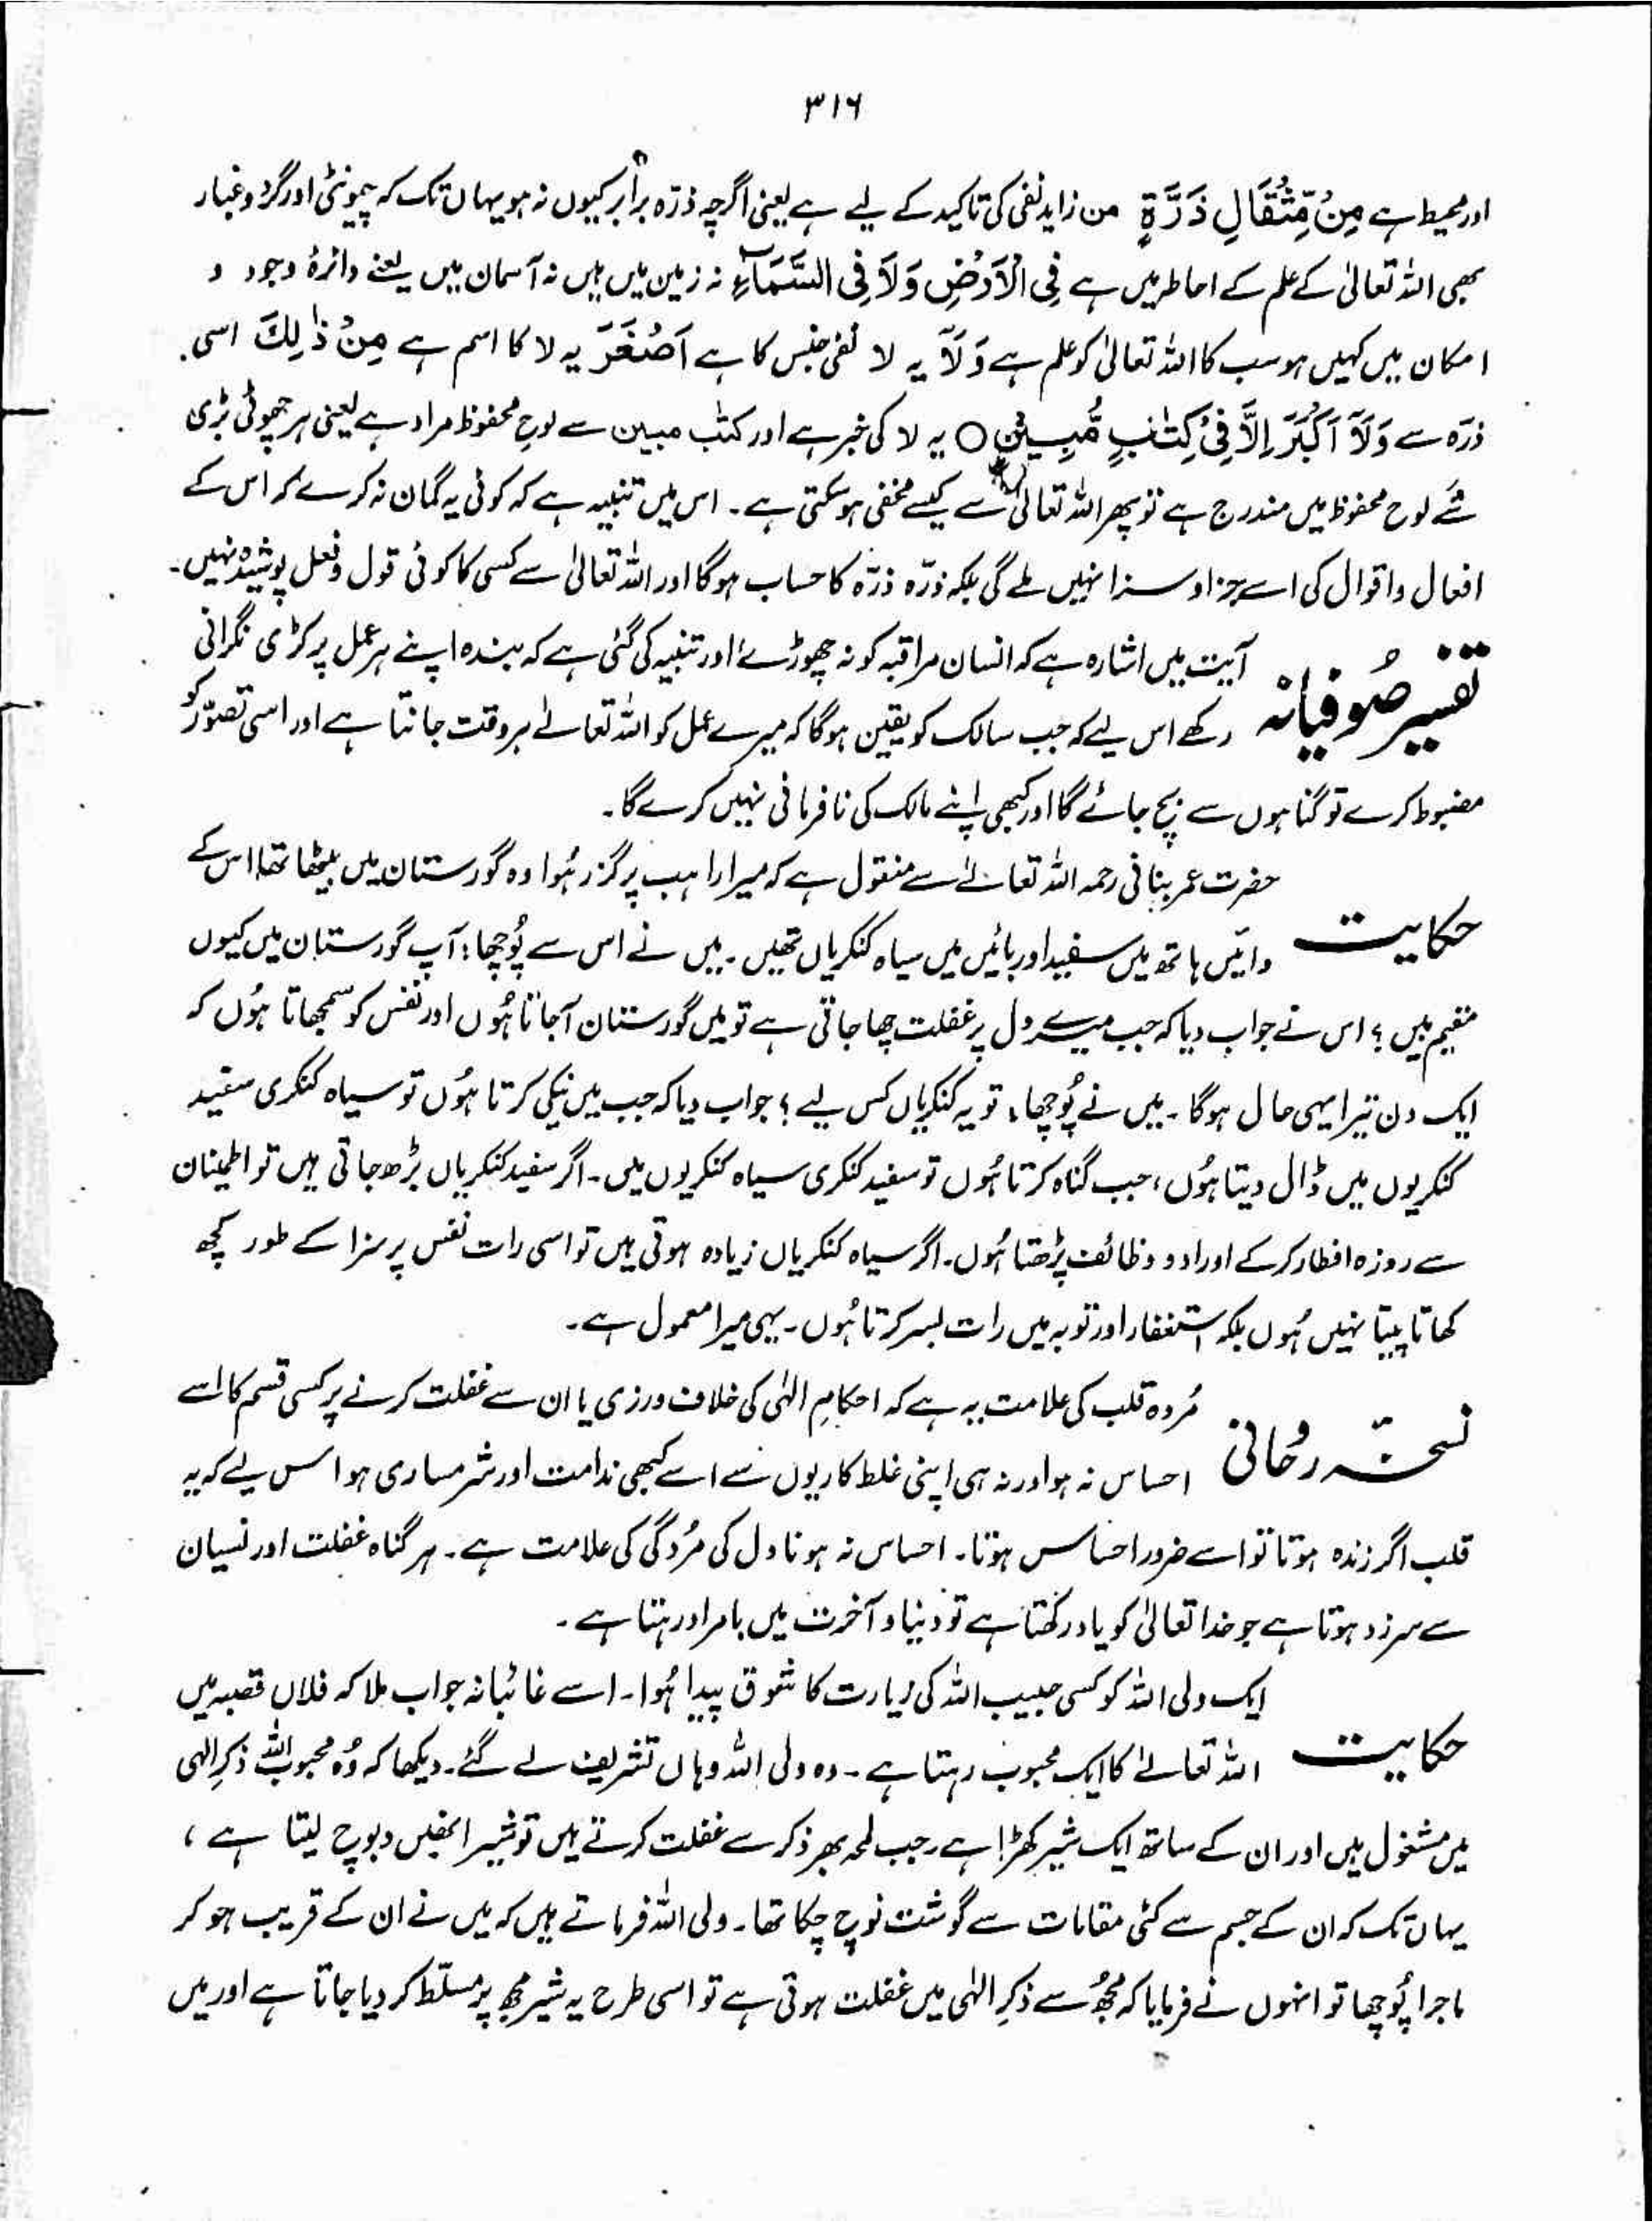 ۳۱۶
اور محیط ہے مِنْ مِّثْقَالِ ذَرَّةٍ من زاید نفی کی تاکید کے لیے ہے یعنی اگرچہ ذرّہ برابر کیوں نہ ہو یہاں تک کہ چیونٹی اور گرد و غبار
بھی اللہ تعالیٰ کے علم کے احاطہ میں ہے فِی الْاَرْضِ وَلَا فِی السَّمَآءِ نہ زمین میں ہیں نہ آسمان میں یعنے دائرۂ وجود و
امکان میں کہیں ہو سب کا اللہ تعالیٰ کو علم ہے وَلَآ یہ لا نفی جنس کا ہے اَصْغَرَ یہ لا کا اسم ہے مِنْ ذٰلِكَ اسی
ذرّہ سے وَلَآ اَکْبَرَ اِلَّا فِیْ کِتٰبٍ مُّبِیْنٍ ○ یہ لا کی خبر ہے اور کتٰب مبین سے لوحِ محفوظ مراد ہے یعنی ہر چھوٹی بڑی
شے لوح محفوظ میں مندرج ہے تو پھر اللہ تعالیٰ سے کیسے مخفی ہو سکتی ہے۔ اس میں تنبیہ ہے کہ کوئی یہ گمان نہ کرے کہ اس کے
افعال و اقوال کی اسے جزا و سزا نہیں ملے گی بلکہ ذرّہ ذرّہ کا حساب ہوگا اور اللہ تعالیٰ سے کسی کا کوئی قول و فعل پوشیدہ نہیں۔
تفسیر صُوفیانہ آیت میں اشارہ ہے کہ انسان مراقبہ کو نہ چھوڑے اور تنبیہ کی گئی ہے کہ بندہ اپنے ہر عمل پر کڑی نگرانی
رکھے اس لیے کہ جب سالک کو یقین ہوگا کہ میرے عمل کو اللہ تعالےٰ ہر وقت جانتا ہے اور اسی تصوّر کو
مضبوط کرے تو گناہوں سے بچ جائے گا اور کبھی اپنے مالک کی نافرمانی نہیں کرے گا۔
حکایت حضرت عمر بنانی رحمہ اللہ تعالےٰ سے منقول ہے کہ میرا راہب پر گزر ہُوا وہ گورستان میں بیٹھا تھا اس کے
دائیں ہاتھ میں سفید اور بائیں میں سیاہ کنکریاں تھیں۔ میں نے اس سے پُوچھا: آپ گورستان میں کیوں
مقیم ہیں؟ اس نے جواب دیا کہ جب میرے دل پر غفلت چھا جاتی ہے تو میں گورستان آجاتا ہُوں اور نفس کو سمجھاتا ہُوں کہ
ایک دن تیرا یہی حال ہوگا۔ میں نے پُوچھا، تو یہ کنکریاں کس لیے؟ جواب دیا کہ جب میں نیکی کرتا ہُوں تو سیاہ کنکری سفید
کنکریوں میں ڈال دیتا ہُوں، جب گناہ کرتا ہُوں تو سفید کنکری سیاہ کنکریوں میں۔ اگر سفید کنکریاں بڑھ جاتی ہیں تو اطمینان
سے روزہ افطار کرکے اوراد و وظائف پڑھتا ہُوں۔ اگر سیاہ کنکریاں زیادہ ہوتی ہیں تو اسی رات نفس پر سزا کے طور کچھ
کھاتا پیتا نہیں ہُوں بلکہ استغفار اور توبہ میں رات بسر کرتا ہُوں۔ یہی میرا معمول ہے۔
نسخہ رُوحانی مُردہ قلب کی علامت یہ ہے کہ احکامِ الہٰی کی خلاف ورزی یا ان سے غفلت کرنے پر کسی قسم کا اسے
احساس نہ ہو اور نہ ہی اپنی غلط کاریوں سے اسے کبھی ندامت اور شرمساری ہو اس لیے کہ یہ
قلب اگر زندہ ہوتا تو اسے ضرور احساس ہوتا۔ احساس نہ ہونا دل کی مُردگی کی علامت ہے۔ ہر گناہ غفلت اور نسیان
سے سرزد ہوتا ہے جو خدا تعالیٰ کو یاد رکھتا ہے تو دنیا و آخرت میں بامراد رہتا ہے۔
حکایت ایک ولی اللہ کو کسی حبیب اللہ کی زیارت کا شوق پیدا ہُوا۔ اسے غائبانہ جواب ملا کہ فلاں قصبہ میں
اللہ تعالےٰ کا ایک محبوب رہتا ہے۔ وہ ولی اللہ وہاں تشریف لے گئے۔ دیکھا کہ وُہ محبوب اللہ ذکرِ الٰہی
میں مشغول ہیں اور ان کے ساتھ ایک شیر کھڑا ہے۔ جب لمحہ بھر ذکر سے غفلت کرتے ہیں تو شیر انھیں دبوچ لیتا ہے،
یہاں تک کہ ان کے جسم سے کئی مقامات سے گوشت نوچ چکا تھا۔ ولی اللہ فرماتے ہیں کہ میں نے ان کے قریب ہو کر
ماجرا پُوچھا تو انہوں نے فرمایا کہ مجُھ سے ذکرِ الہٰی میں غفلت ہوتی ہے تو اسی طرح یہ شیر مجھ پر مسلّط کر دیا جاتا ہے اور میں